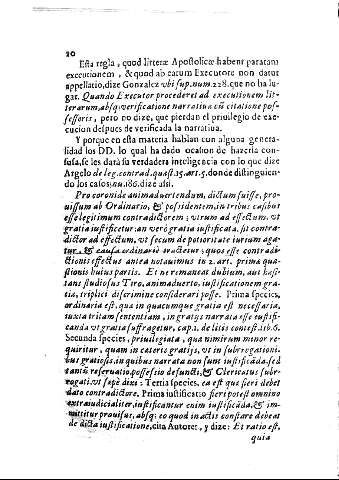 20
Esta regla, quod litteræ Apostolicæ habent paratam
executionem, & quod ab earum Executore non datur
appellatio, dize Gonzalez vbi sup. num. 228. que no ha lu-
gar. Quando Executor procederet ad executionem lit-
terarum, absq; verificatione narratiua cũ citatione pos-
sessoris, pero no dize, que pierdan el priuilegio de exe-
cucion despues de verificada la narratiua.
Y porque en esta materia hablan con alguna genera-
lidad los DD. lo qual ha dado ocasion de hazerla con-
fusa, se les dará su verdadera inteligencia con lo que dize
Argelo de leg. contrad. quæst. 15. art. 5. donde distinguien-
do los casos, nu. 186. dize assi.
Pro coronide animaduertendum, dictum fuisse, pro-
uissum ab Ordinario, & possidentem, in tribus casibus
esse legitimum contradictorem; vtrum ad effectum, vt
gratia iustificetur: an verò gratia iustificata, sit contra-
dictor ad effectum, vt secum de potioritate iurium aga-
tur, & causa ordinariè tractetur; quos esse contradi-
ctionis effectus antea notauimus in 2. art. prima quæ-
stionis huius partis. Et ne remaneat dubium, aut hæsi-
tans studiosus Tiro, animaduerto, iustificationem gra-
tia, triplici discrimine considerari posse. Prima species,
ordinaria est, qua in quacumque gratia est necessaria,
iuxta tritam sententiam, in gratijs narrata esse iustifi-
canda vt gratia suffragetur, cap. 2. de litis contest. lib. 6.
Secunda species, priuilegiata, qua nimirum minor re-
quiritur, quam in cæteris gratijs, vt in subrogationi-
bus gratiosis, in quibus narrata non sunt iustificãda, sed
tantũ reseruatio, possessio defuncti, & Clericatus subr-
rogati, vt sæpe dixi: Tertia species, ea est que fieri debet
dato contradictore. Prima iustificatio fieri potest omnino
extraiudicialiter, iustificantur enim iustificãda, & im-
mittitur prouisus, absq; eo quod in actis constare debeat
de dicta iustificatione, cita Autores, y dize: Et ratio est,
quia